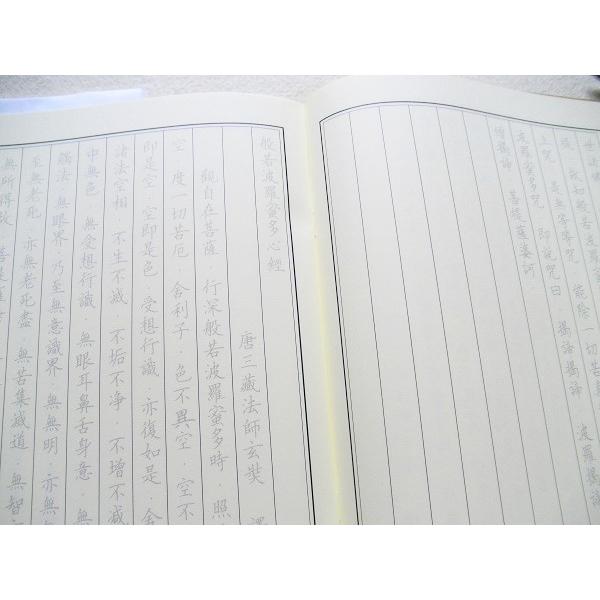 故知般若波羅
上咒．是無等等咒．能除一切苦
波羅蜜多咒．即說咒曰．揭諦揭諦．波羅揭諦
僧揭諦．菩提薩婆訶．
般若波羅蜜多心經
唐三藏法師玄奘 譯
觀自在菩薩．行深般若波羅蜜多時．照
空．度一切苦厄．舍利子．色不異空．空不
即是空．空即是色．受想行識．亦復如是．舍
諸法空相．不生不滅．不垢不净．不增不減
中無色．無受想行識．無眼耳鼻舌身意．無
觸法．無眼界．乃至無意識界．無無明．亦無
至無老死．亦無老死盡．無苦集滅道．無智
無所得故．菩提薩